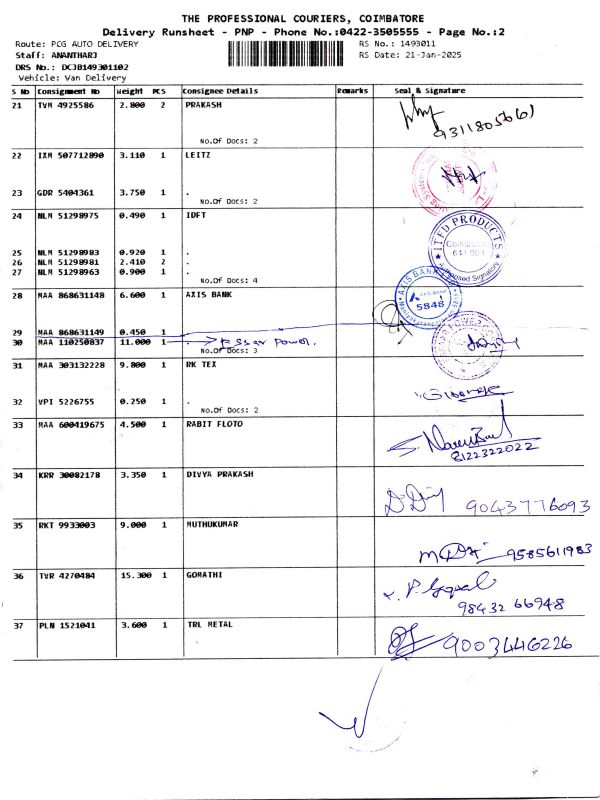 THE PROFESSIONAL COURIERS, COIMBATORE
Delivery Runsheet - PNP - Phone No.:0422-3505555 - Page No.:2
Route: PCG AUTO DELIVERY RS No.: 1493011
Staff: ANANTHARJ RS Date: 21-Jan-2025
DRS No.: DCJB149301102
Vehicle: Van Delivery
S No Consignment No Weight PCS Consignee Details Remarks Seal & Signature
21 TVM 4925586 2.800 2 PRAKASH
9311805661
No.Of Docs: 2
22 IXM 507712890 3.110 1 LEITZ
23 GDR 5404361 3.750 1 .
No.Of Docs: 2
24 NLM 51298975 0.490 1 IDFT
ITED PRODUCTS
Coimbatore
641 003
Authorised Signatory
25 NLM 51298983 0.920 1 .
26 NLM 51298981 2.410 2 .
27 NLM 51298963 0.900 1 .
No.Of Docs: 4
28 MAA 868631148 6.600 1 AXIS BANK
AXIS BANK
AXIS BANK
5848
29 MAA 868631149 0.450 1 .
30 MAA 110250837 11.000 1 . Power.
No.Of Docs: 3
31 MAA 303132228 9.800 1 RK TEX
32 VPI 5226755 0.250 1 .
No.Of Docs: 2
33 MAA 600419675 4.500 1 RABIT FLOTO
8122322022
34 KRR 30082178 3.350 1 DIVYA PRAKASH
9043776093
35 RKT 9933003 9.000 1 MUTHUKUMAR
9585611983
36 TVR 4270484 15.300 1 GOMATHI
98432 66948
37 PLN 1521041 3.600 1 TRL METAL
9003446226